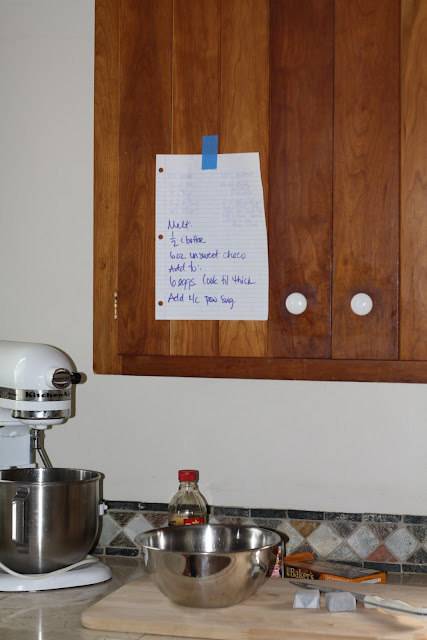 Melt.
1/2 c butter
6 oz unsweet choco
Add to:
6 eggs Cook til thick
Add 4/c pow sug.
KitchenAid
BAKER'S